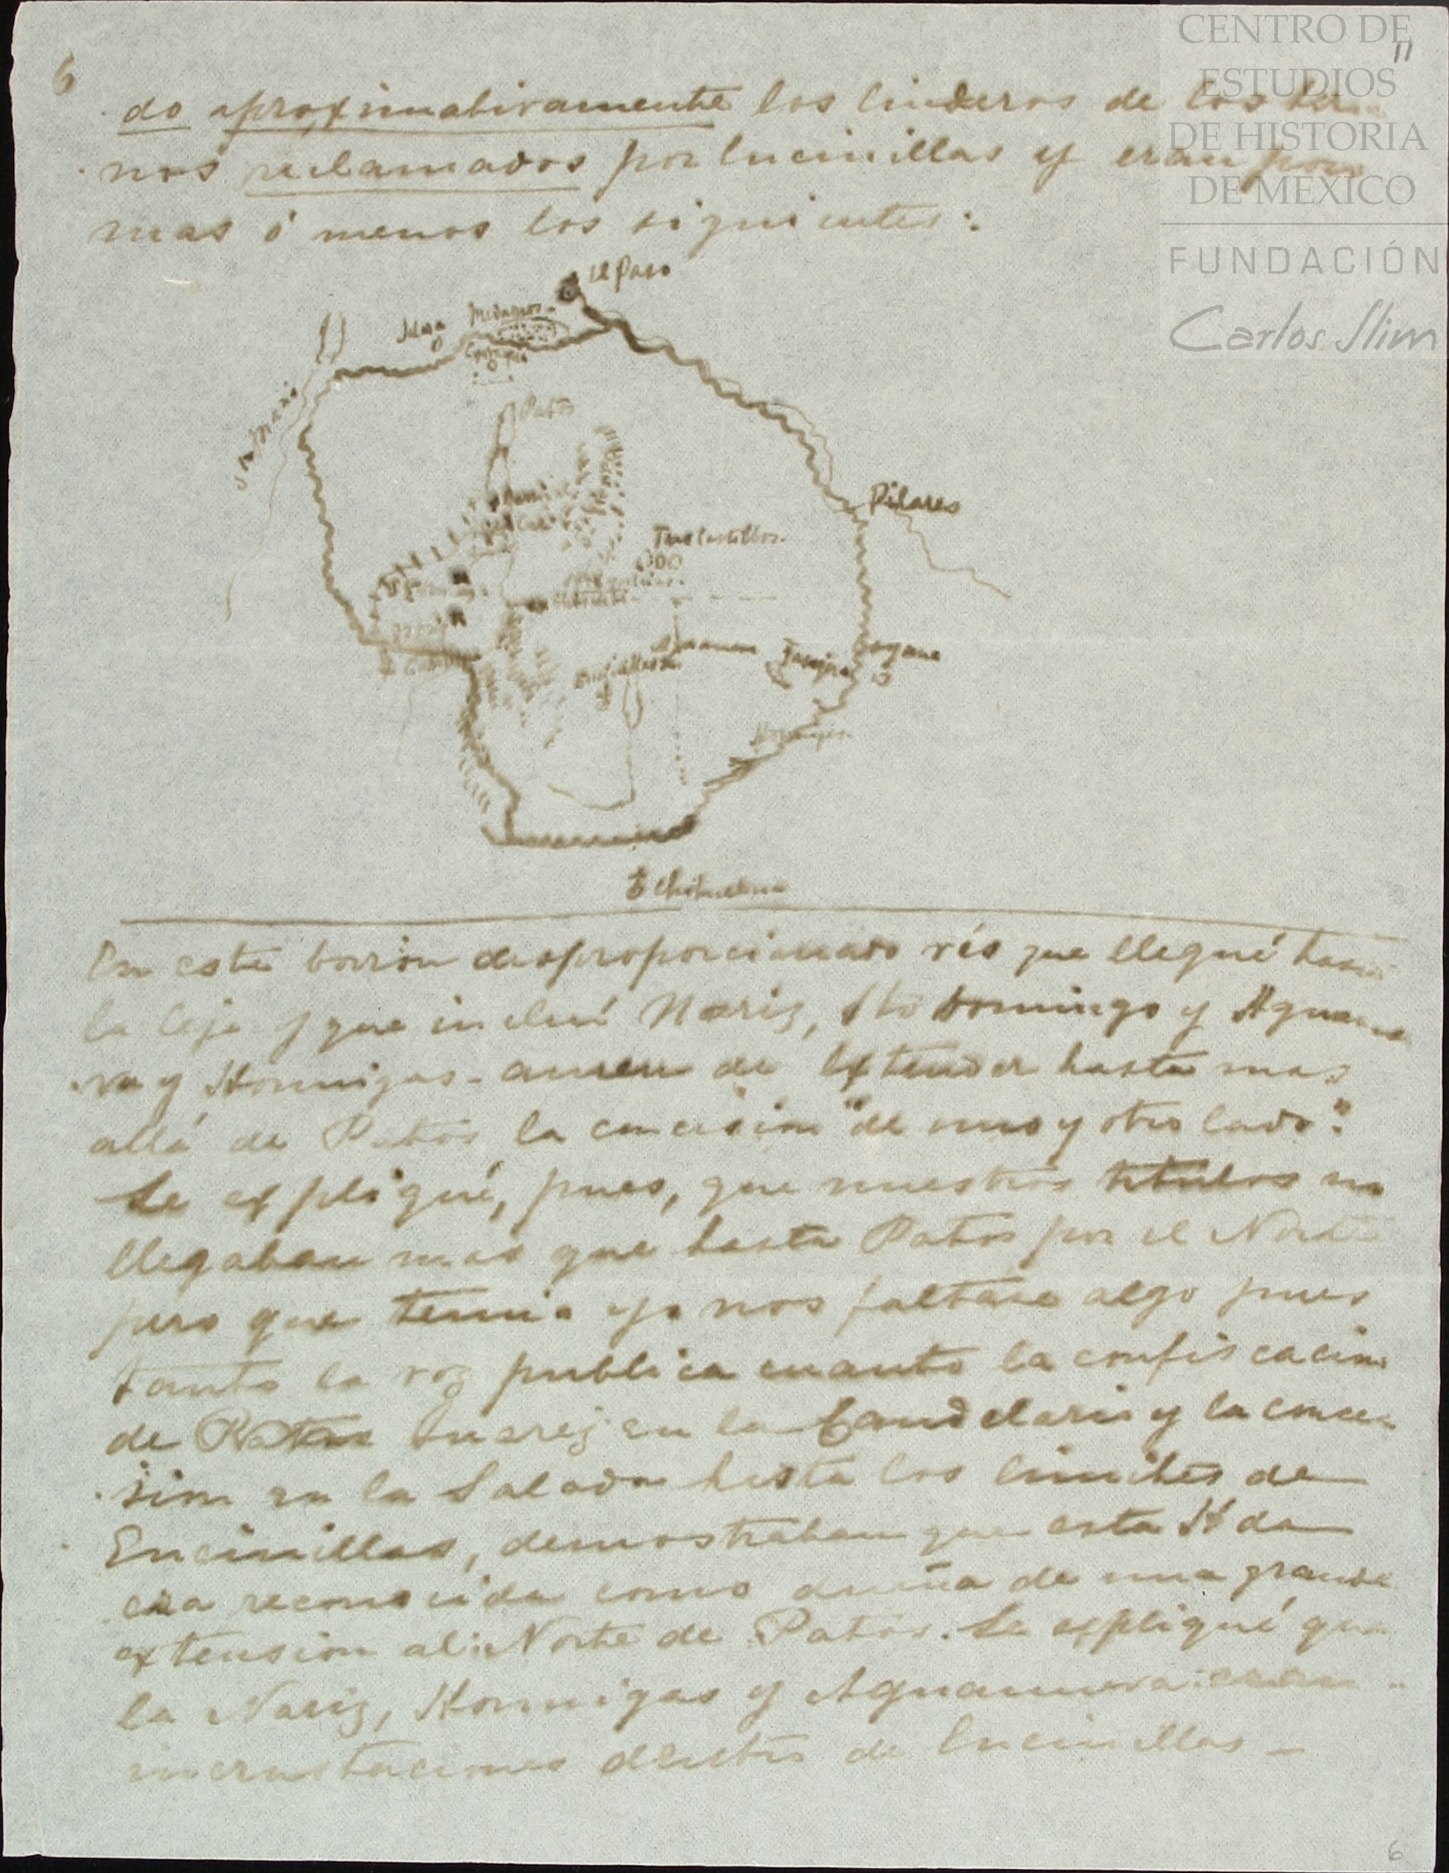 6
11
CENTRO DE
ESTUDIOS
DE HISTORIA
DE MEXICO
FUNDACIÓN
Carlos Slim
do aproximativamente los linderos de los
nos reclamados por Encinillas y eran poco
mas ó menos los siguientes:
El Paso
Medanos
Pilares
Tres Castillos
Encinillas
Hormigas
Chihuahua
En este borron desproporcionado vés que llegué hasta
la Ceja y que incluí Nariz, Sto Domingo y Aguanue
va y Hormigas - amen de extender hasta mas
allá de Patos la concesion "de uno y otro lado".
Le expliqué, pues, que nuestros titulos no
llegaban mas que hasta Patos por el Norte
pero que temia yo nos faltase algo pues
tanto la voz publica cuanto la confiscacion
de Suarez en la Candelaria y la conce
sion en la Salada hasta los limites de
Encinillas, demostraban que esta Hda
era reconocida como dueña de una grande
extension al Norte de Patos. Le expliqué que
la Nariz, Hormigas y Aguanueva eran
incrustaciones dentro de Encinillas -
6